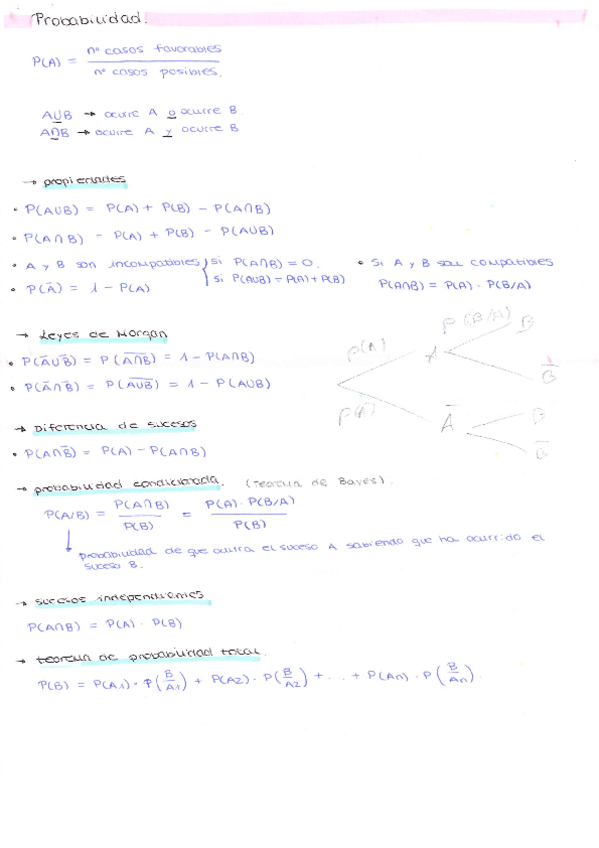 Probabilidad.
P(A) = nº casos favorables / nº casos posibles.
A∪B → ocurre A o ocurre B.
A∩B → ocurre A y ocurre B
→ propiedades
• P(A∪B) = P(A) + P(B) - P(A∩B)
• P(A∩B) - P(A) + P(B) - P(A∪B)
• A y B son incompatibles) si P(A∩B) = 0.
si P(A∪B) = P(A) + P(B)
• P(Ā) = 1 - P(A)
• Si A y B son compatibles
P(A∩B) = P(A) · P(B/A)
→ Leyes de Morgan
• P(Ā∪B̅) = P(A̅∩̅B̅) = 1 - P(A∩B)
• P(Ā∩B̅) = P(A̅∪̅B̅) = 1 - P(A∪B)
P(A) A P(B/A) B
B̅
P(Ā) Ā B
B̅
→ Diferencia de sucesos
• P(A∩B̅) = P(A) - P(A∩B)
→ probabilidad condicionada. (Teorema de Bayes).
P(A/B) = P(A∩B) / P(B) = P(A) · P(B/A) / P(B)
probabilidad de que ocurra el suceso A sabiendo que ha ocurrido el
suceso B.
→ sucesos independientes
P(A∩B) = P(A) · P(B)
→ teorema de probabilidad total.
P(B) = P(A1) · P(B/A1) + P(A2) · P(B/A2) + ... + P(An) · P(B/An).